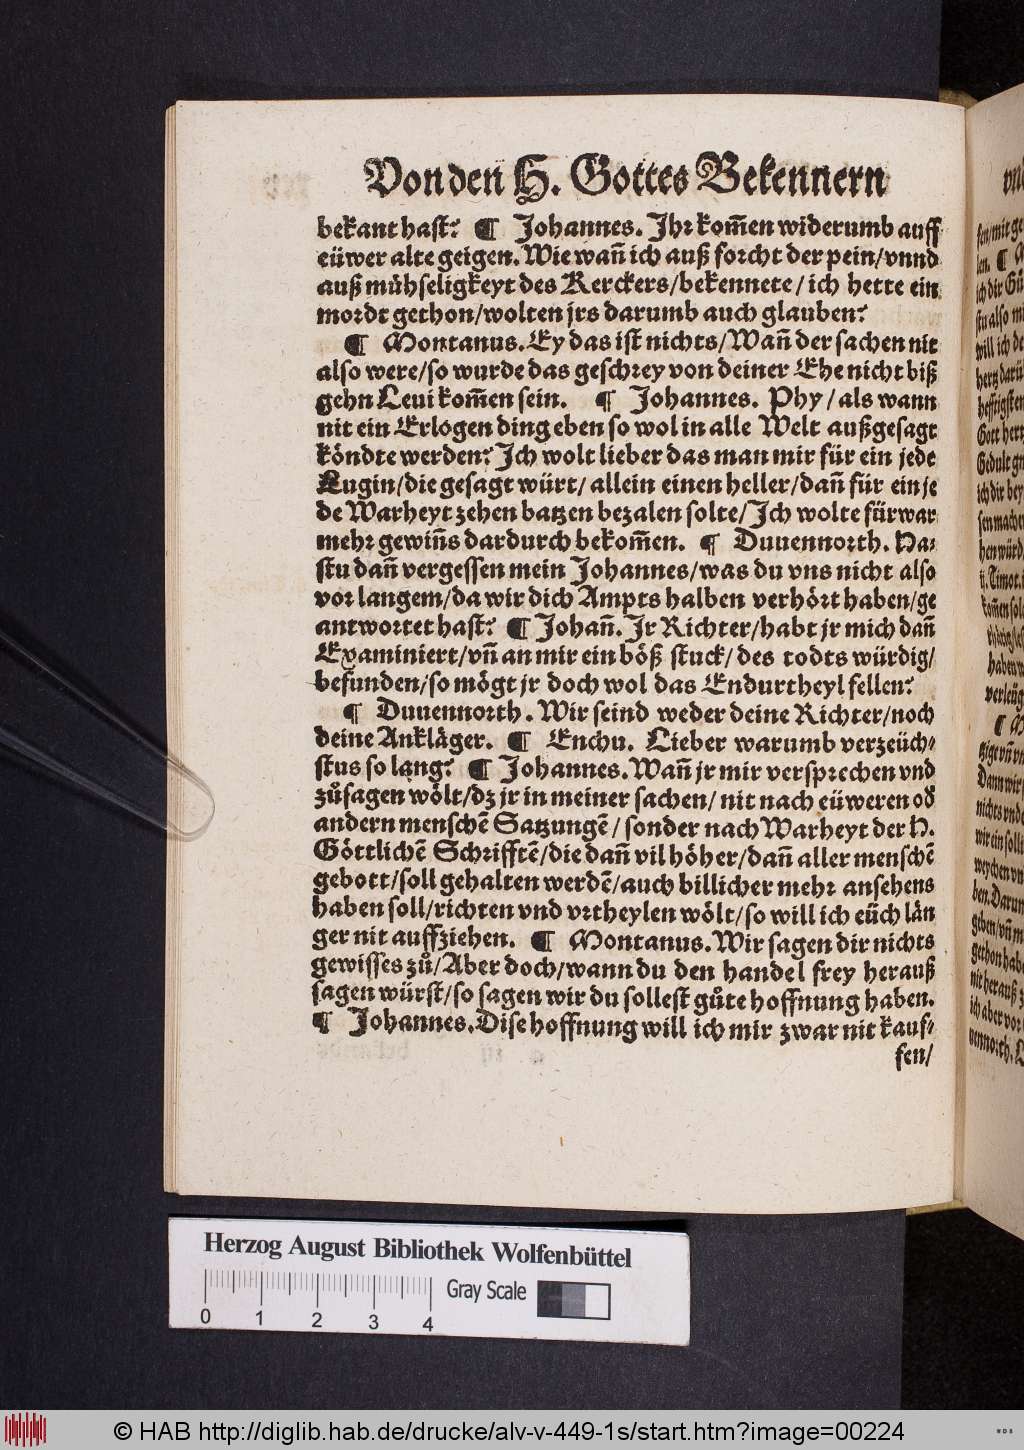 Von den H. Gottes Bekennern
bekant hast? ¶ Johannes. Ihr kom̃en widerumb auff
eüwer alte geigen. Wie wañ ich auß forcht der pein/vnnd
auß mühseligkeyt des Kerckers/bekennete/ich hette ein
mordt gethon/wolten jrs darumb auch glauben?
¶ Montanus. Ey das ist nichts/Wañ der sachen nit
also were/so wurde das geschrey von deiner Ehe nicht biß
gehn Leui kom̃en sein. ¶ Johannes. Phy/als wann
nit ein Erlogen ding eben so wol in alle Welt außgesagt
köndte werden? Ich wolt lieber das man mir für ein jede
Lugin/die gesagt würt/allein einen heller/dañ für ein je
de Warheyt zehen batzen bezalen solte/Ich wolte fürwar
mehr gewiñs dardurch bekom̃en. ¶ Duuennorth. Ha⸗
stu dañ vergessen mein Johannes/was du vns nicht also
vor langem/da wir dich Ampts halben verhört haben/ge
antwortet hast? ¶ Johañ. Jr Richter/habt jr mich dañ
Examiniert/vñ an mir ein böß stuck/des todts würdig/
befunden/so mögt jr doch wol das Endurtheyl fellen?
¶ Duuennorth. Wir seind weder deine Richter/noch
deine Ankläger. ¶ Enchu. Lieber warumb verzeüch⸗
stus so lang? ¶ Johannes. Wañ jr mir versprechen vnd
zůsagen wölt/dz jr in meiner sachen/nit nach eüweren od̕
andern menschẽ Satzungẽ/sonder nach Warheyt der H.
Göttlichẽ Schrifftẽ/die dañ vil höher/dañ aller menschẽ
gebott/soll gehalten werdẽ/auch billicher mehr ansehens
haben soll/richten vnd vrtheylen wölt/so will ich eüch län
ger nit auffziehen. ¶ Montanus. Wir sagen dir nichts
gewisses zů/Aber doch/wann du den handel frey herauß
sagen würst/so sagen wir du sollest gůte hoffnung haben.
¶ Johannes. Dise hoffnung will ich mir zwar nit kauf⸗
fen/
Herzog August Bibliothek Wolfenbüttel
Gray Scale
0 1 2 3 4
© HAB http://diglib.hab.de/drucke/alv-v-449-1s/start.htm?image=00224